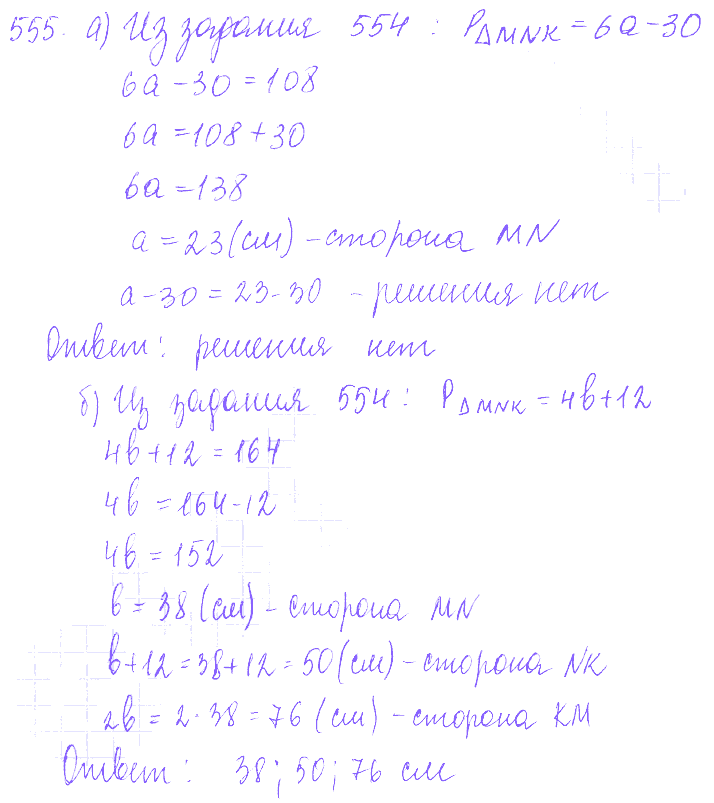 555. а) Из задания 554 : P△MNK = 6a-30
6a-30=108
6a=108+30
6a=138
a=23(см) - сторона MN
a-30=23-30 - решения нет
Ответ: решения нет
б) Из задания 554: P△MNK = 4b+12
4b+12=164
4b=164-12
4b=152
b=38(см) - сторона MN
b+12=38+12=50(см) - сторона NK
2b=2·38=76(см) - сторона KM
Ответ: 38; 50; 76 см